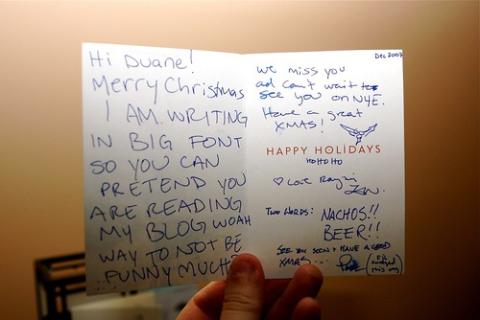 Hi Duane!
Merry Christmas
I AM WRITING
IN BIG FONT
SO YOU CAN
PRETEND YOU
ARE READING
MY BLOG WOAH
WAY TO NOT BE
...FUNNY MUCH?
Dec 2007
We miss you
and can't wait to
see you on NYE.
Have a great
XMAS!
HAPPY HOLIDAYS
HO HO HO
♡ Love
TWO WORDS: NACHOS!!
BEER!!
SEE YOU SOON & HAVE A GOOD
XMAS...